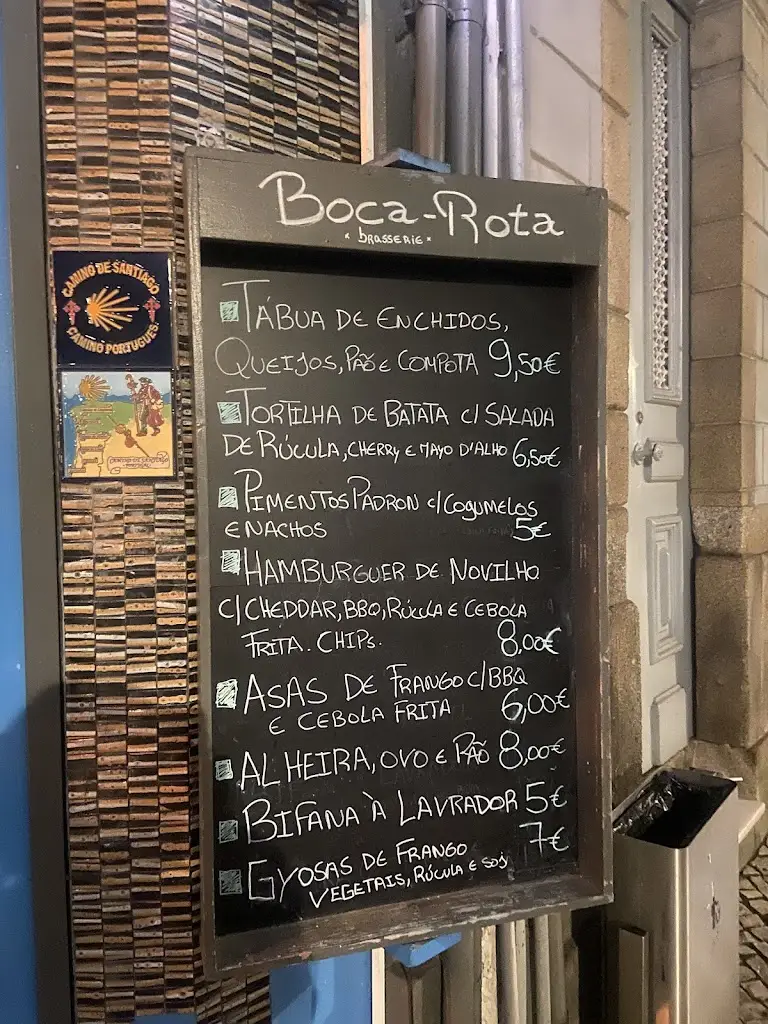 Boca-Rota
"brasserie"
CAMINO DE SANTIAGO
CAMINO PORTUGUES
TÁBUA DE ENCHIDOS,
QUEIJOS, PÃO E COMPOTA 9,50€
TORTILHA DE BATATA C/ SALADA
DE RÚCULA, CHERRY E MAYO D'ALHO 6,50€
PIMENTOS PADRON C/COGUMELOS
E NACHOS 5€
HAMBURGUER DE NOVILHO
C/CHEDDAR, BBQ, RÚCULA E CEBOLA
FRITA. CHIPS. 8,00€
ASAS DE FRANGO C/BBQ
E CEBOLA FRITA 6,00€
ALHEIRA, OVO E PÃO 8,00€
BIFANA À LAVRADOR 5€
GYOSAS DE FRANGO 7€
VEGETAIS, RÚCULA E SOJ